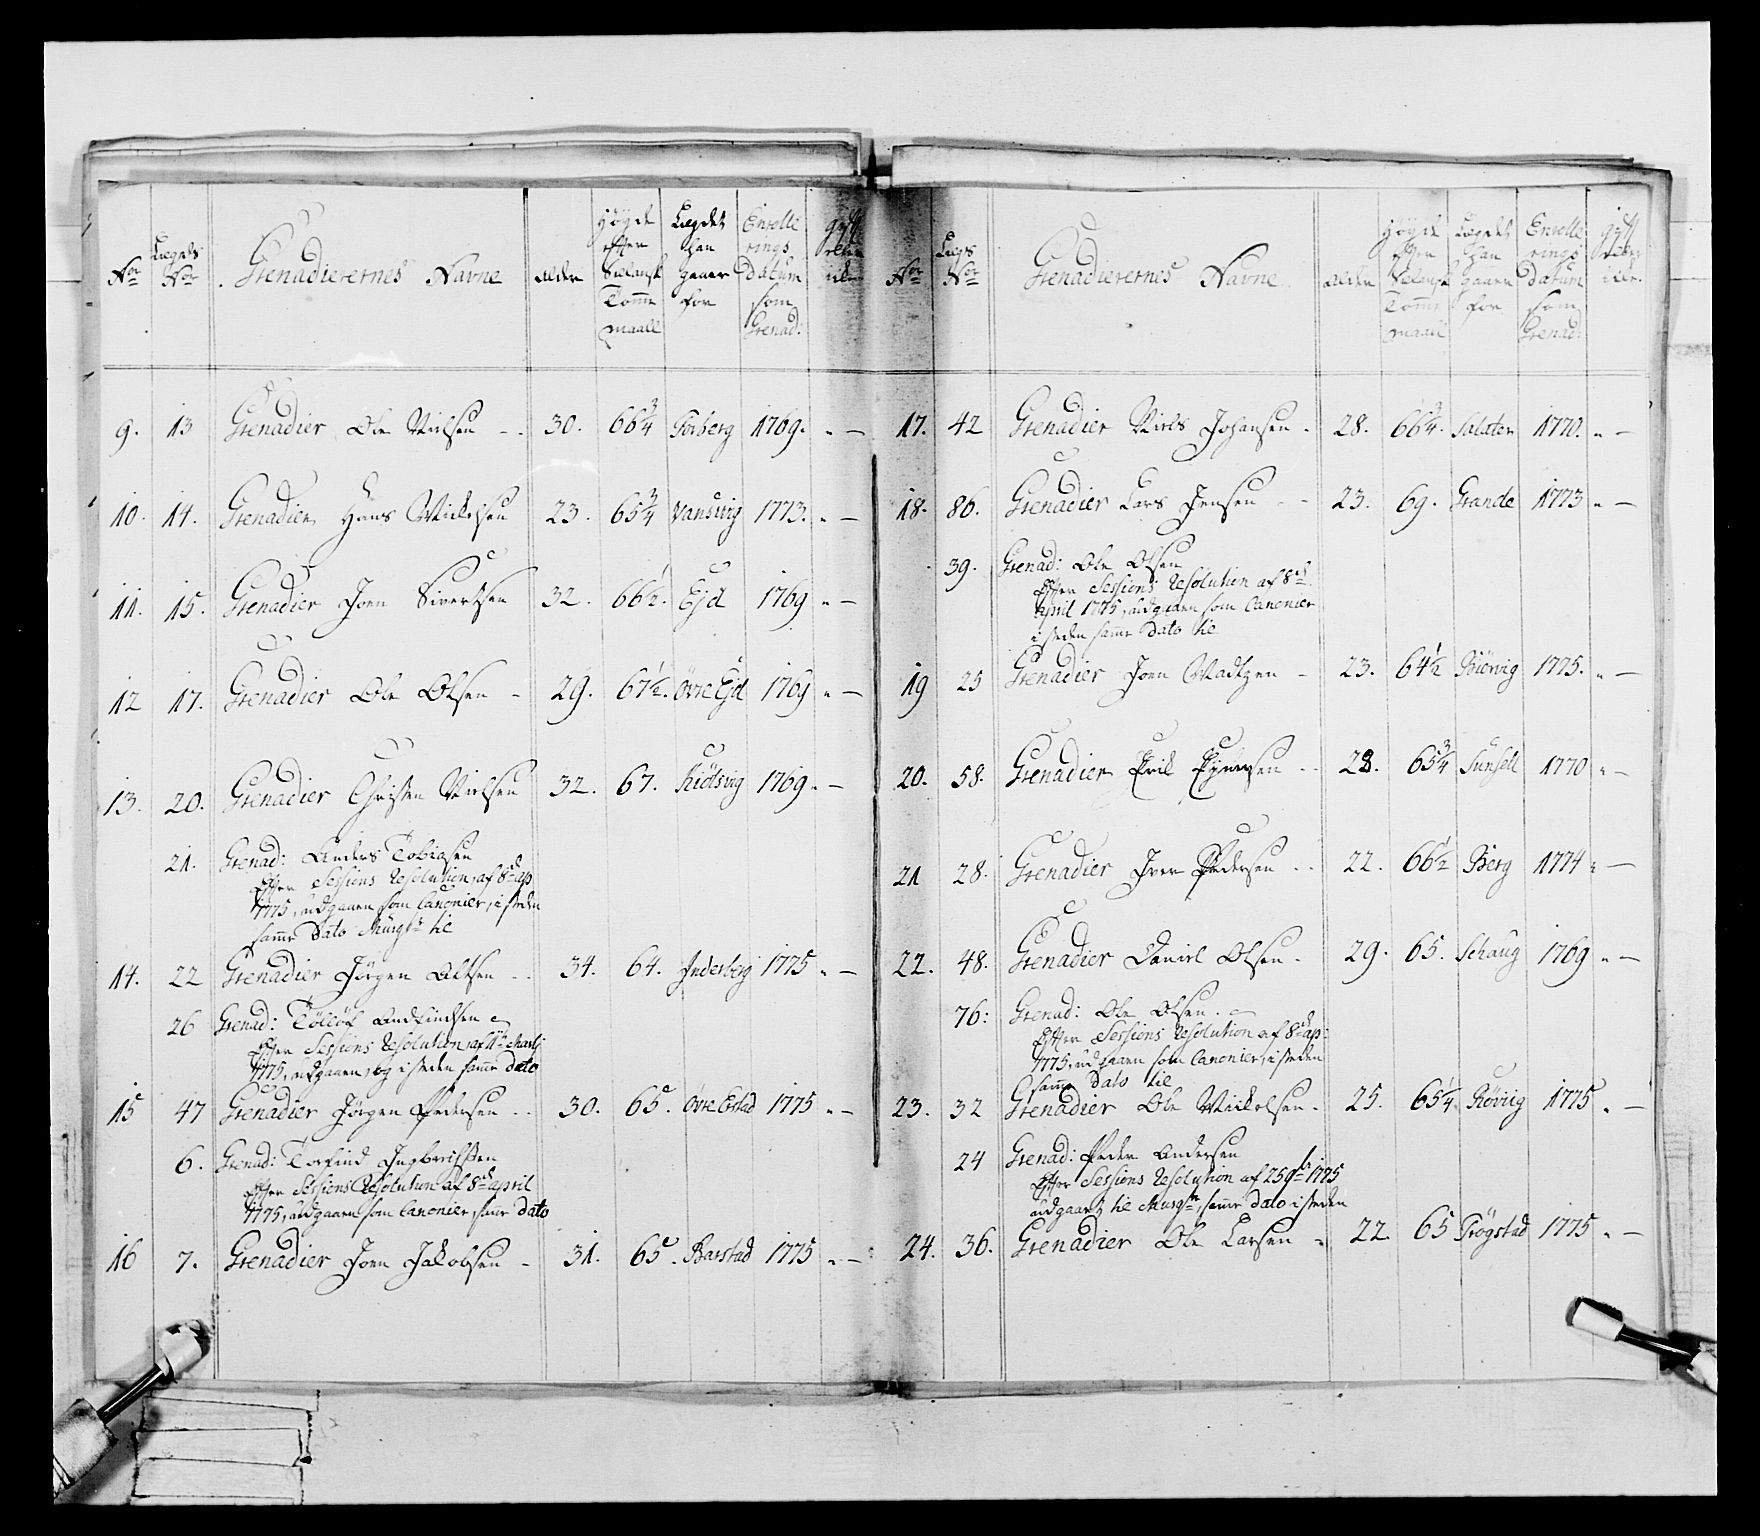 No̱ṟ Lægds No̱ṟ Grenadierernes Navne alder Høyde efter Sælansk Tomme maall Lægdet han gaaer for Enrolle rings datum som Grenad:
9. 13 Grenadier Ole Nielsen - - 30. 66¾ Forberg 1769. „ —
10. 14. Grenadier Hans Mickelsen 23. 65¾ Vansvig 1773. „ —
11. 15. Grenadier Joen Sivertsen 32. 66½. Ejd 1769 „ —
12 17. Grenadier Ole Olsen - 29. 67½. Øvre Ejd 1769 „ —
13. 20. Grenadier Christen Nielsen 32. 67. Kiölsvig 1769. „ —
21. Grenad: Anders Tobiasen
Efter Sessions Resolution af 8de ap
1775, udgaaen som Canonier, i steden
samme Dato Murqt: til
14. 22 Grenadier Jörgen Olsen - - 34. 64. Inderberg 1775 „ —
26 Grenad: Tölløf
Efter Sessions Resolution af 11te Martj
1775, udgaaen, og i steden samme dato
15 47 Grenadier Jörgen Pedersen - - 30. 65. Øvre Estad 1775 „ —
6. Grenad: Torfind Ingbrichtsen
Efter Sessions Resolution af 8de april
1775, udgaaen som Canonier, samme dato
16 7. Grenadier Joen Jakobsen - 31. 65. Barstad 1775 „ —
No̱ṟ Lægs No̱ṟ Grenadierernes Navne alder Høyde efter Sælansk Tomme maall Lægdet han gaaer for Enrolle rings datum som Grenad:
17. 42 Grenadier Niels Johansen - 28. 66¾. Salater 1770. „ —
18. 86. Grenadier Lars Jensen - - 23. 69. Grande 1773 „ —
39. Grenad: Ole Olsen
Efter Sessions Resolution af 8de
april 1775, udgaaen som Canonier
i steden samme Dato til
19 25 Grenadier Joen Madtzen - 23. 64½ Biörvig 1775. „ —
20. 58. Grenadier Eril - - 28. 65¾ Sunsell 1770 „ —
21 28. Grenadier Iver Pedersen - - 22. 66½ Berg 1774 „ —
22. 48. Grenadier Daniel Olsen - 29. 65. Schaug 1769 „ —
76: Grenad: Ole Olsen.
Efter Sessions Resolution af 8de ap:
1775, udgaaen som Canonier, i steden
samme Dato til
23. 32 Grenadier Ole Mickelsen - 25. 65¼ Rövig 1775 „ —
24 Grenad: Peder Andersen
Efter Sessions Resolution af 25 1775
udgaaen til Murqt:, samme Dato i steden
24. 36. Grenadier Ole Larsen „ 22. 65 Trögstad 1775 „ —